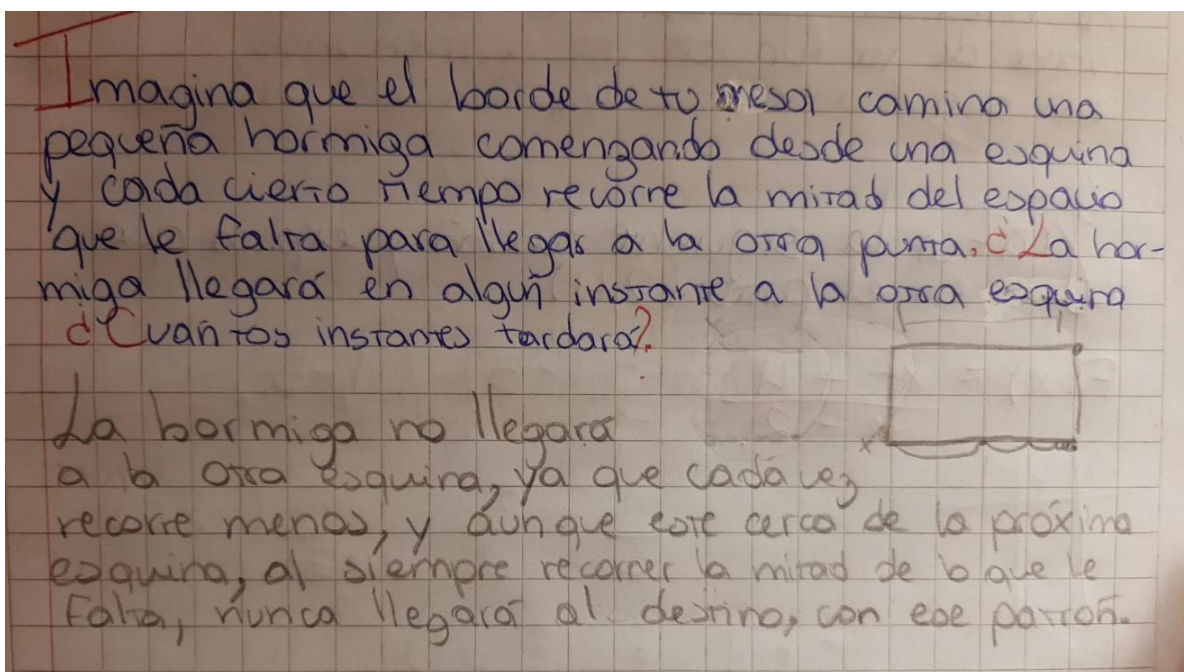 Imagina que el borde de tu mesa camina una
pequeña hormiga comenzando desde una esquina
y cada cierto tiempo recorre la mitad del espacio
que le falta para llegar a la otra punta. ¿La hor-
miga llegará en algún instante a la otra esquina
¿Cuántos instantes tardará?.
La hormiga no llegará
a la otra esquina, ya que cada vez
recorre menos, y aunque esté cerca de la próxima
esquina, al siempre recorrer la mitad de lo que le
falta, nunca llegará al destino, con ese patrón.
x